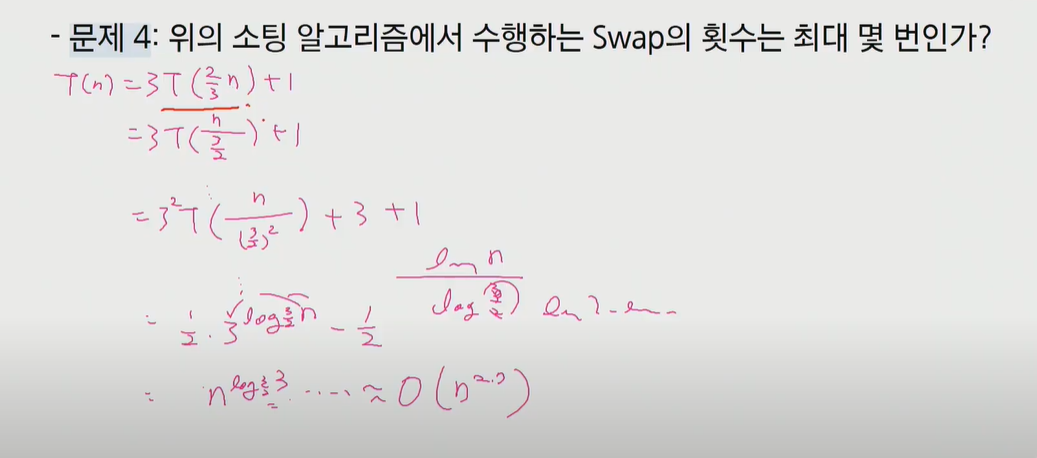 - 문제 4: 위의 소팅 알고리즘에서 수행하는 Swap의 횟수는 최대 몇 번인가?
T(n) = 3T(2/3 n) + 1
= 3T(n / (3/2)) + 1
= 3²T(n / (3/2)²) + 3 + 1
= 1/2 · 3^(log_(3/2) n) - 1/2
log(3/2)
= n^(log_(3/2) 3) ..... ≈ O(n^2.7)